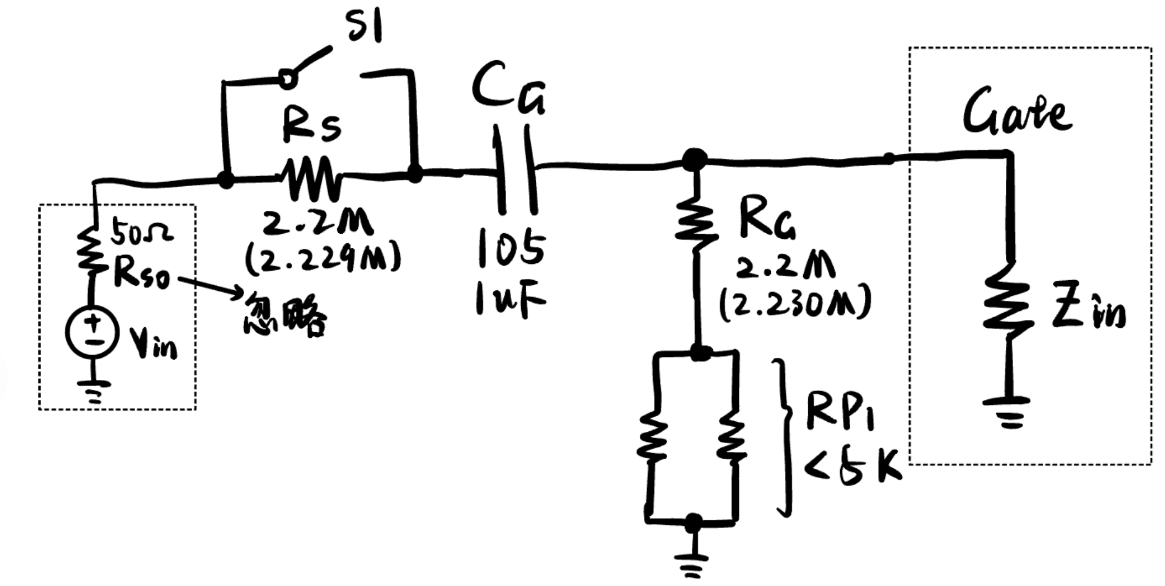 S1
Rs
2.2M
(2.229M)
CG
105
1uF
Gate
50Ω
Rso
忽略
+
−
Vin
RG
2.2M
(2.230M)
RP1
<5K
Zin